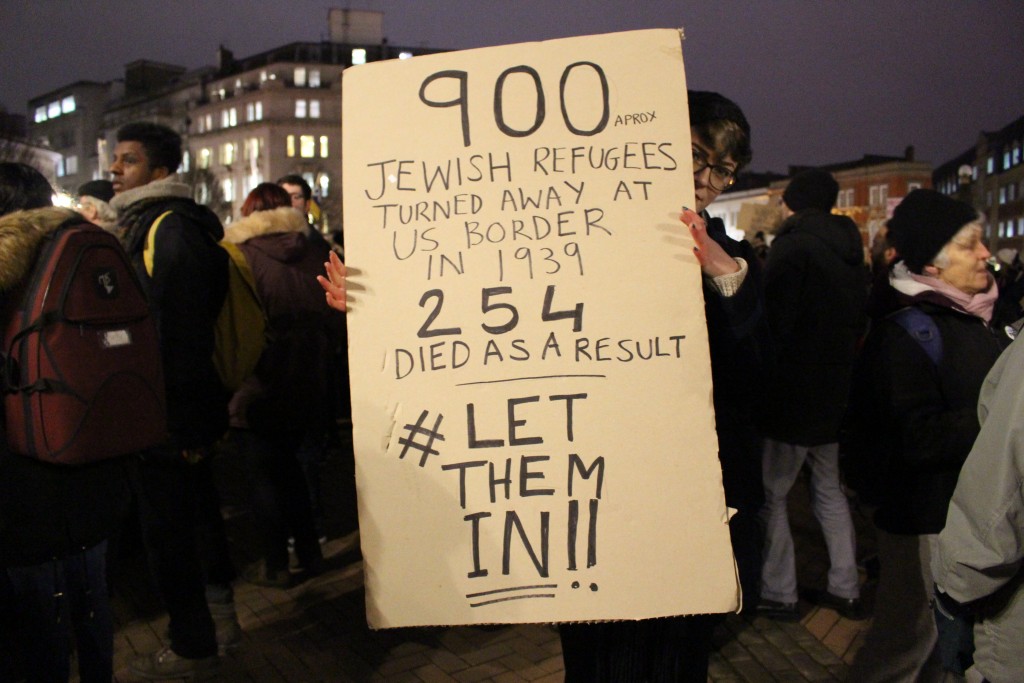 900 APROX
JEWISH REFUGEES
TURNED AWAY AT
US BORDER
IN 1939
254
DIED AS A RESULT
# LET
THEM
IN!!